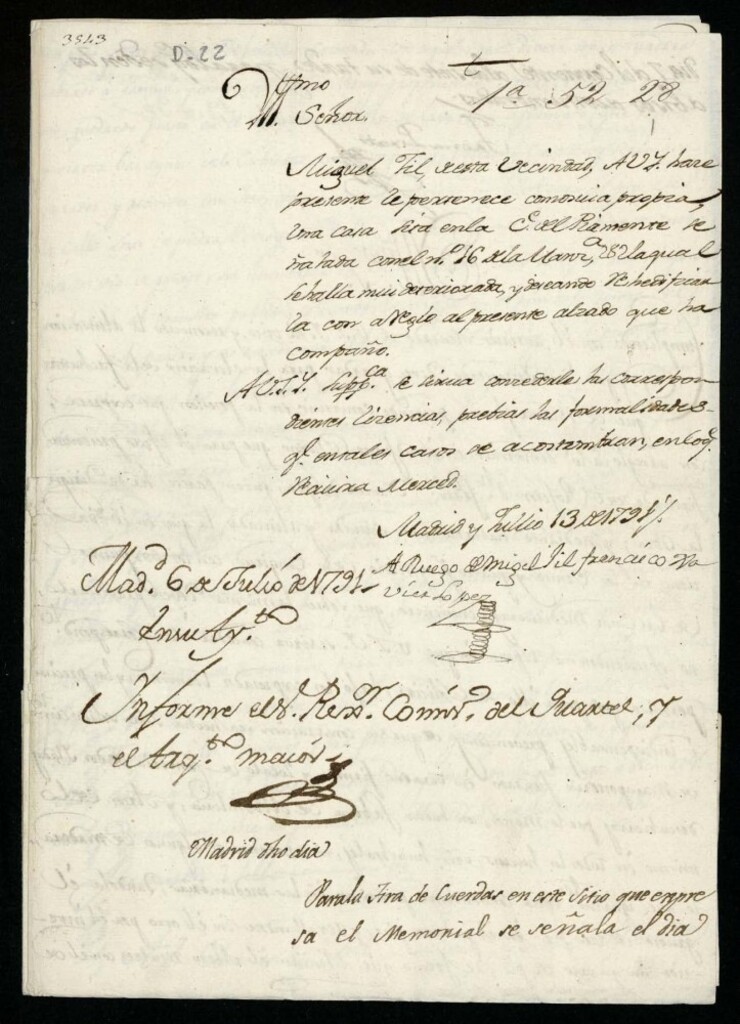 3543
D-22
†
1ª 52 28
Yttmo
Señor.
Miguel Gil, de esta Vecindad, A V.I. hace
presente le pertenece como cosa propia,
una casa sita en la C.e del Piamonte se
ñalada con el n.º 16 de la Manz.ª 282 la qual
se halla mui deteriorada, y deseando Rehedificar
la con arreglo al presente alzado que ha
compaño.
A V.I. Supp.ca se sirva concederle las correspon
dientes licencias, prebias las formalidades
q.e en tales casos se acostumbran, en lo q.e
Recivira Merced.
Madrid y Julio 13 de 1791
A Ruego de Migel Gil francisco Xa
vier Lopez
Mad.d 6 de Julio de 1791
En su Ay.to
Informe el S.r Rexx.or Comis.º del Quartel, y
el Arq.to maior
Madrid dho dia
Para la tira de Cuerdas en este Sitio que expre
sa el Memorial se señala el dia